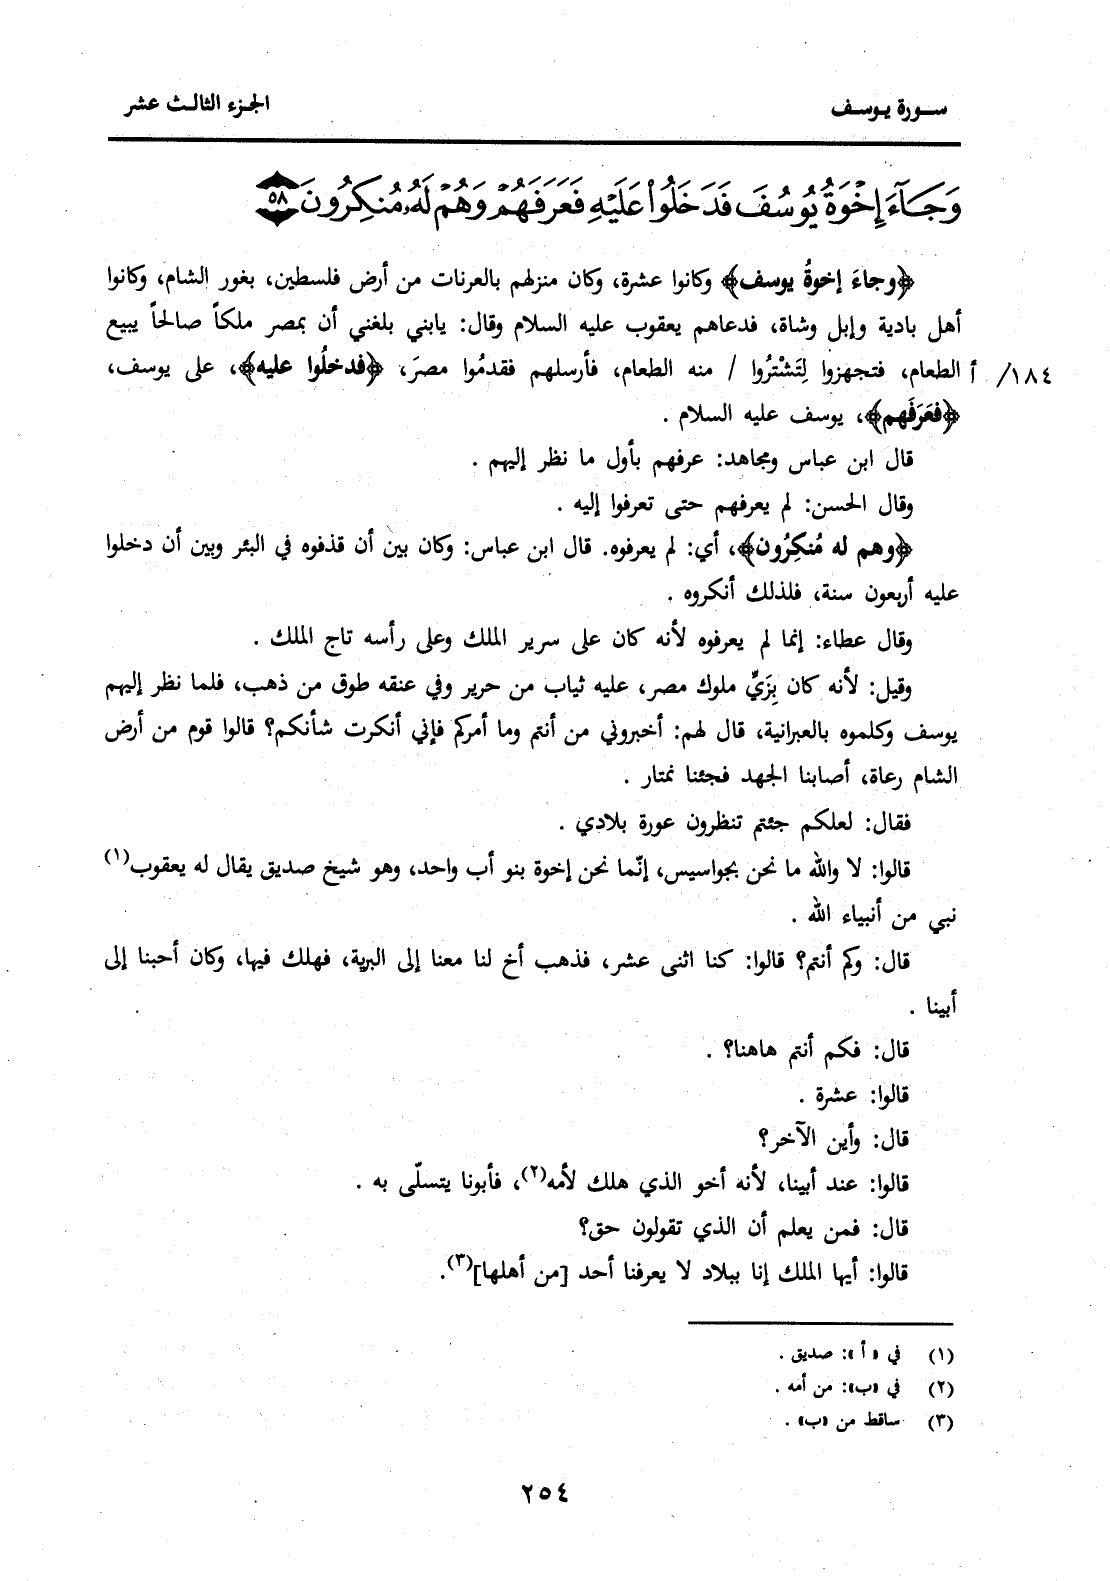 سورة يوسف
الجزء الثالث عشر
وَجَآءَ إِخْوَةُ يُوسُفَ فَدَخَلُواْ عَلَيْهِ فَعَرَفَهُمْ وَهُمْ لَهُۥ مُنكِرُونَ ٥٨
﴿وجاءَ إخوةُ يوسف﴾ وكانوا عشرة، وكان منزلهم بالعرنات من أرض فلسطين، بغور الشام، وكانوا
أهل بادية وإبل وشاة، فدعاهم يعقوب عليه السلام وقال: يابني بلغني أن بمصر ملكاً صالحاً يبيع
الطعام، فتجهزوا لِتَشْتُروا / منه الطعام، فأرسلهم فقدمُوا مصرَ، ﴿فدخلُوا عليه﴾، على يوسف،
١٨٤/ أ
﴿فعَرَفَهم﴾، يوسف عليه السلام .
قال ابن عباس ومجاهد: عرفهم بأول ما نظر إليهم .
وقال الحسن: لم يعرفهم حتى تعرفوا إليه .
﴿وهم له مُنكِرُون﴾، أي: لم يعرفوه. قال ابن عباس: وكان بين أن قذفوه في البئر وبين أن دخلوا
عليه أربعون سنة، فلذلك أنكروه .
وقال عطاء: إنما لم يعرفوه لأنه كان على سرير الملك وعلى رأسه تاج الملك .
وقيل: لأنه كان بِزَيِّ ملوك مصر، عليه ثياب من حرير وفي عنقه طوق من ذهب، فلما نظر إليهم
يوسف وكلموه بالعبرانية، قال لهم: أخبروني من أنتم وما أمركم فإني أنكرت شأنكم؟ قالوا قوم من أرض
الشام رعاة، أصابنا الجهد فجئنا نمتار .
فقال: لعلكم جئتم تنظرون عورة بلادي .
قالوا: لا والله ما نحن بجواسيس، إنّما نحن إخوة بنو أب واحد، وهو شيخ صديق يقال له يعقوب(١)
نبي من أنبياء الله .
قال: وكم أنتم؟ قالوا: كنا اثنى عشر، فذهب أخ لنا معنا إلى البرية، فهلك فيها، وكان أحبنا إلى
أبينا .
قال: فكم أنتم هاهنا؟ .
قالوا: عشرة .
قال: وأين الآخر؟
قالوا: عند أبينا، لأنه أخو الذي هلك لأمه(٢)، فأبونا يتسلّى به .
قال: فمن يعلم أن الذي تقولون حق؟
قالوا: أيها الملك إنا ببلاد لا يعرفنا أحد [من أهلها](٣).
(١) في «أ»: صديق .
(٢) في «ب»: من أمه .
(٣) ساقط من «ب» .
٢٥٤